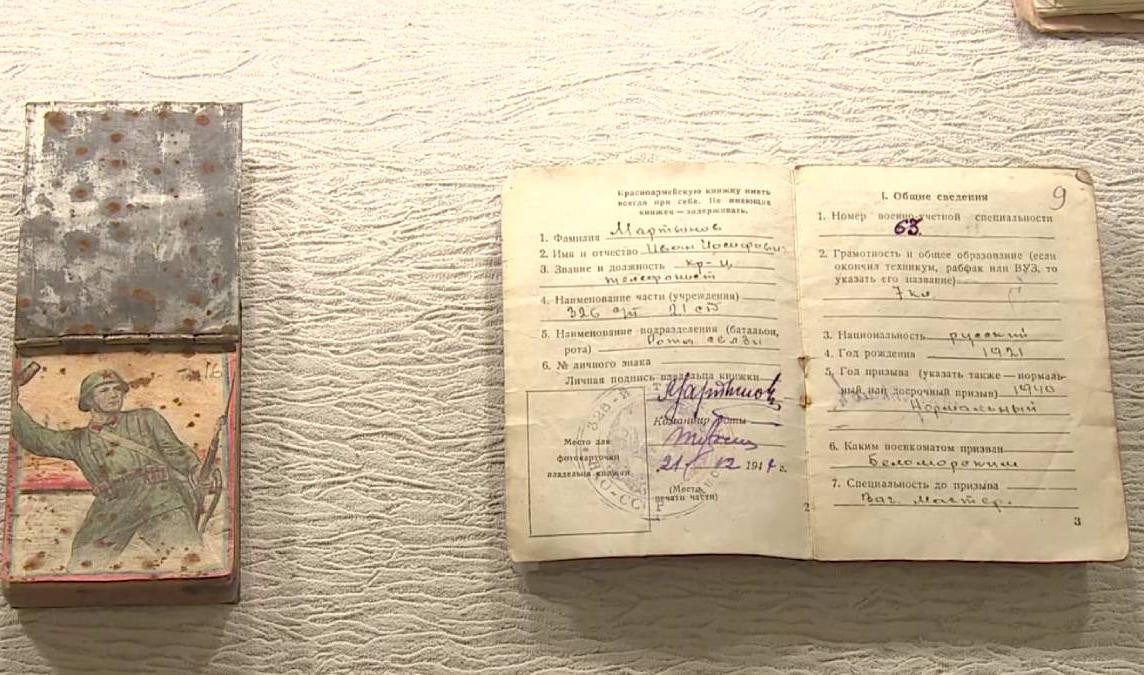 16
Красноармейскую книжку иметь
всегда при себе. Не имеющих
книжек — задерживать.
1. Фамилия Мартынов
2. Имя и отчество Иван Иосифович
3. Звание и должность кр-ц
телефонист
4. Наименование части (учреждения)
326 21 сд
5. Наименование подразделения (батальон,
рота) Рота связи
6. № личного знака
Личная подпись владельца книжки
Мартынов
Командир роты
Место для
фотокарточки
владельца книжки
21 12 194 г.
(Место
печати части)
2
9
I. Общие сведения
1. Номер военно-учетной специальности
63
2. Грамотность и общее образование (если
окончил техникум, рабфак или ВУЗ, то
указать его название)
7 кл.
3. Национальность русский
4. Год рождения 1921
5. Год призыва (указать также — нормаль-
ный или досрочный призыв) 1940
Нормальный
6. Каким военкоматом призван
Беломорским
7. Специальность до призыва
Ваг. Мастер.
3